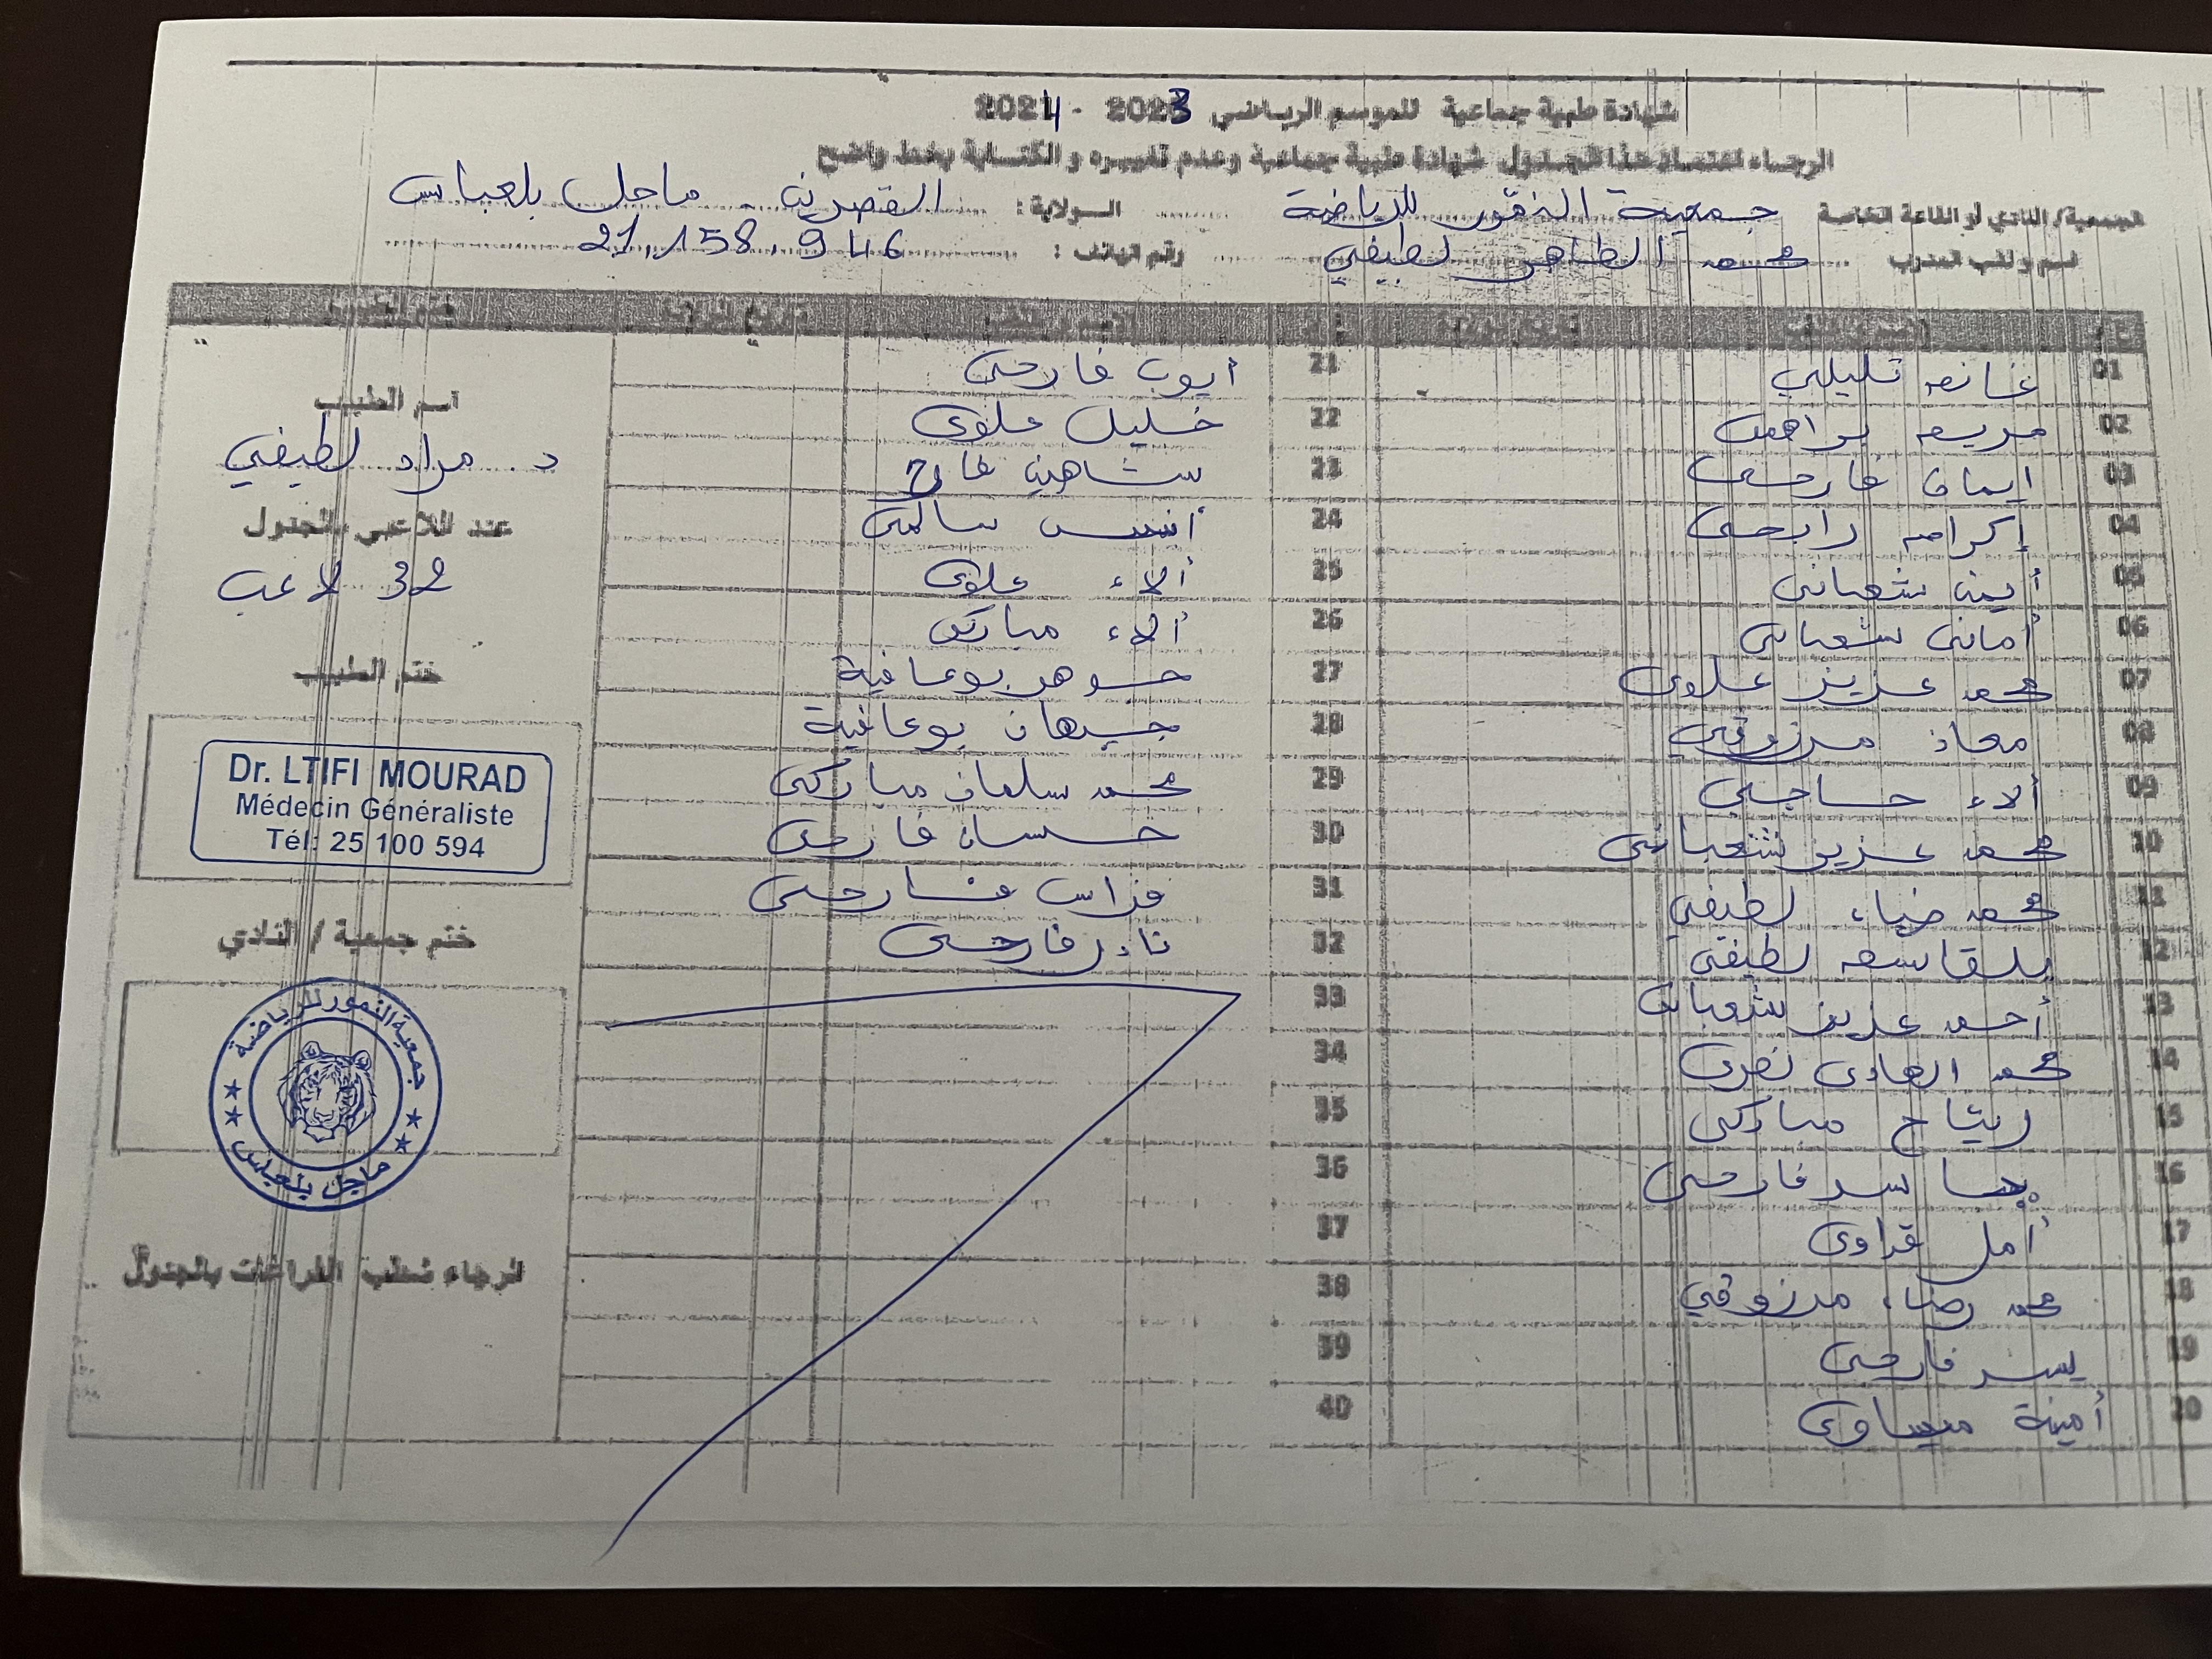 شهادة طبية جماعية للموسم الرياضي 2023 - 2024
الرجاء اعتماد هذا الجدول شهادة طبية جماعية وعدم تغييره و الكتابة بخط واضح
الجمعية/ النادي أو القاعة الخاصة جمعية النمور للرياضة الولاية : القصرين - ماجل بلعباس
اسم و لقب المدرب محمد الطاهر لطيفي رقم الهاتف : 21.158.946
01 غانم تليلي
02 مريم براهمي
03 ايمان فارحي
04 إكرام رابحي
05 أيمن شعباني
06 أماني شعباني
07 محمد عزيز علوي
08 معاذ مرزوقي
09 ألاء حاجي
10 محمد عزيز شعباني
11 محمد ضياء لطيفي
12 بلقاسم لطيفي
13 أحمد عزيز شعباني
14 محمد الهادي نصري
15 ريتاج مباركي
16 فارحي
17 أمل قراوي
18 محمد رضاء مرزوقي
19 يسر فارحي
20 أمينة عيساوي
21 أيوب فارحي
22 خليل علوي
23 شاهين فارح
24 أنيس سالمي
25 ألاء علوي
26 ألاء مباركي
27 جوهر بوعافية
28 جيهان بوعافية
29 محمد سلمان مباركي
30 حسان فارحي
31 فراس فارحي
32 نادر فارحي
33
34
35
36
37
38
39
40
اسم الطبيب
د. مراد لطيفي
عدد اللاعبي بالجدول
32 لاعب
ختم الطبيب
Dr. LTIFI MOURAD
Médecin Généraliste
Tél: 25 100 594
ختم جمعية / النادي
جمعية النمور للرياضة
ماجل بلعباس
الرجاء شطب الفراغات بالجدول